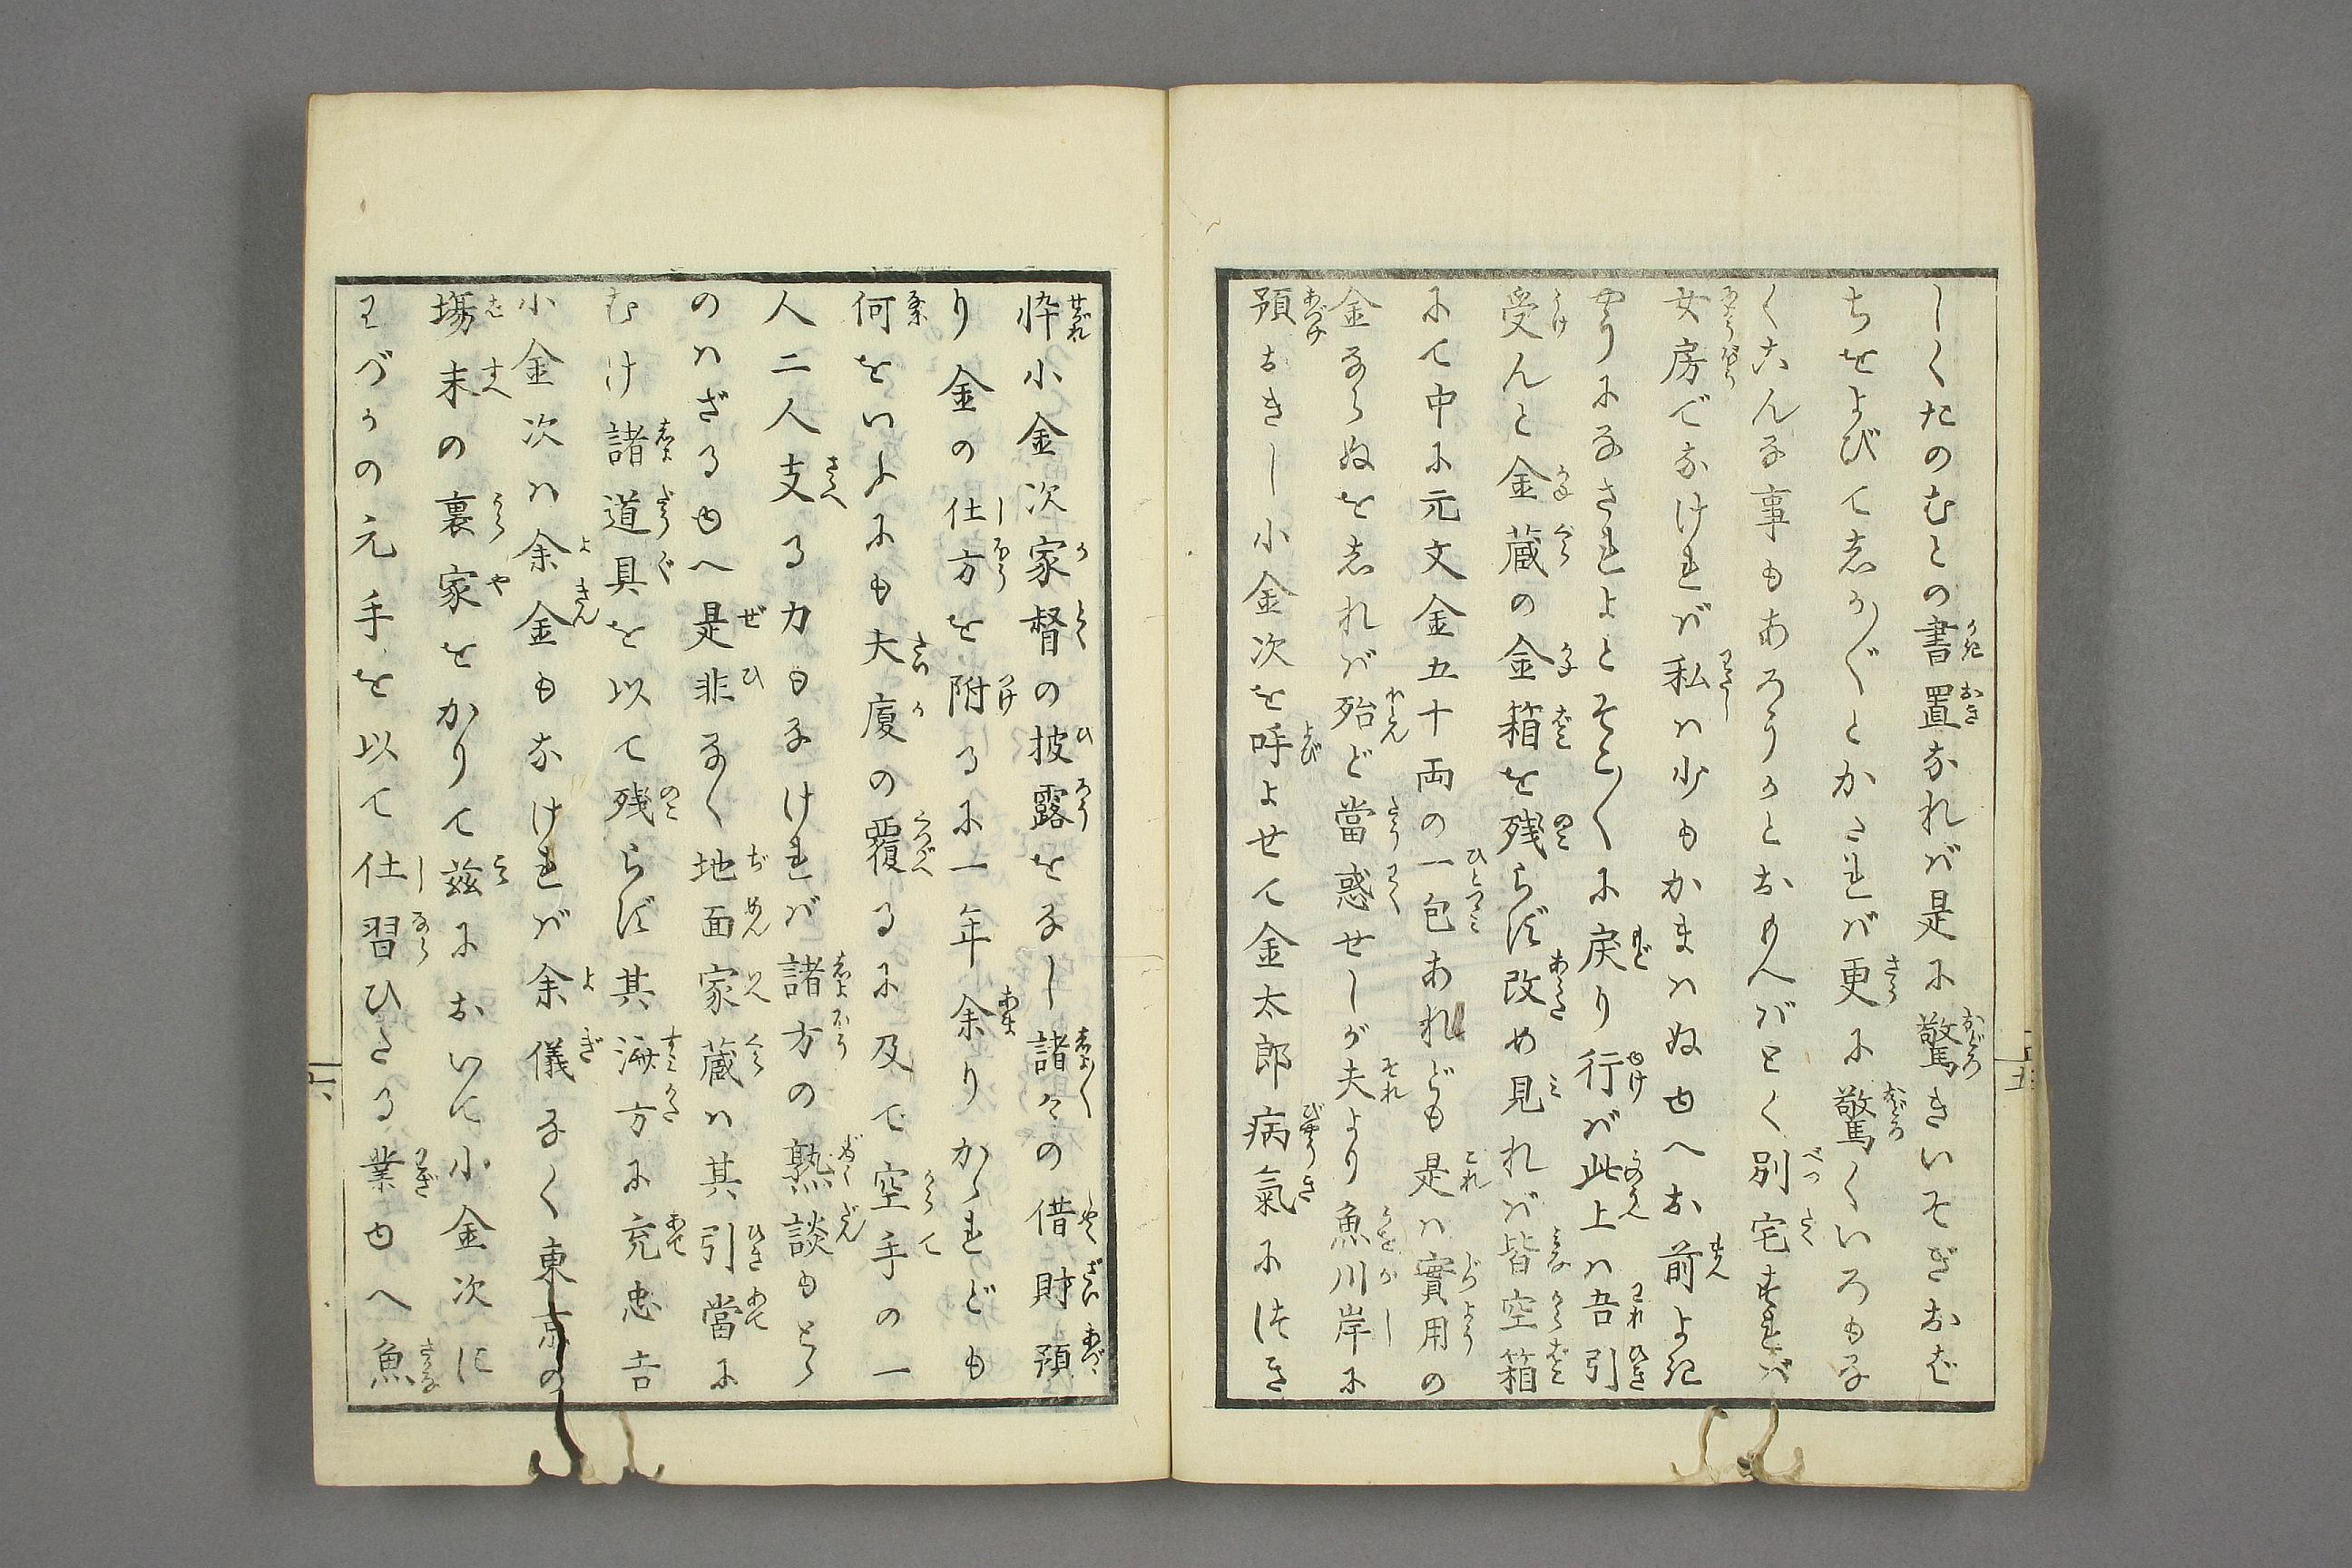 しくたのむとの書置なれば是に驚きいそぎおば
ちをよびてしか〴〵とかたれば更に驚くいろもな
くこんな事もあろうかとおもへばとく別宅すれば
女房でなければ私は少もかまはぬゆへお前よき
やうになされよとそこ〳〵に戻り行ば此上は吾引
受んと金蔵の金箱を残らず改め見れば皆空箱
にて中に元文金五十両の一包あれども是は實用の
金ならぬをしれば殆ど當惑せしが夫より魚川岸に
預おきし小金次を呼よせて金太郎病氣につき
悴小金次家督の披露をなし諸々の借財預
り金の仕方を附るに一年余りかゝれども
何をいよにも大廈の覆るに及で空手の一
人二人支る力もなければ諸方の熟談もとゝ
のはざるゆへ是非なく地面家蔵は其引當に
むけ諸道具を以て残らず其済方に充忠吉
小金次は余金もなければ余儀なく東京の
塲末の裏家をかりて茲において小金次に
わづかの元手を以て仕習ひたる業ゆへ魚
十五
十六